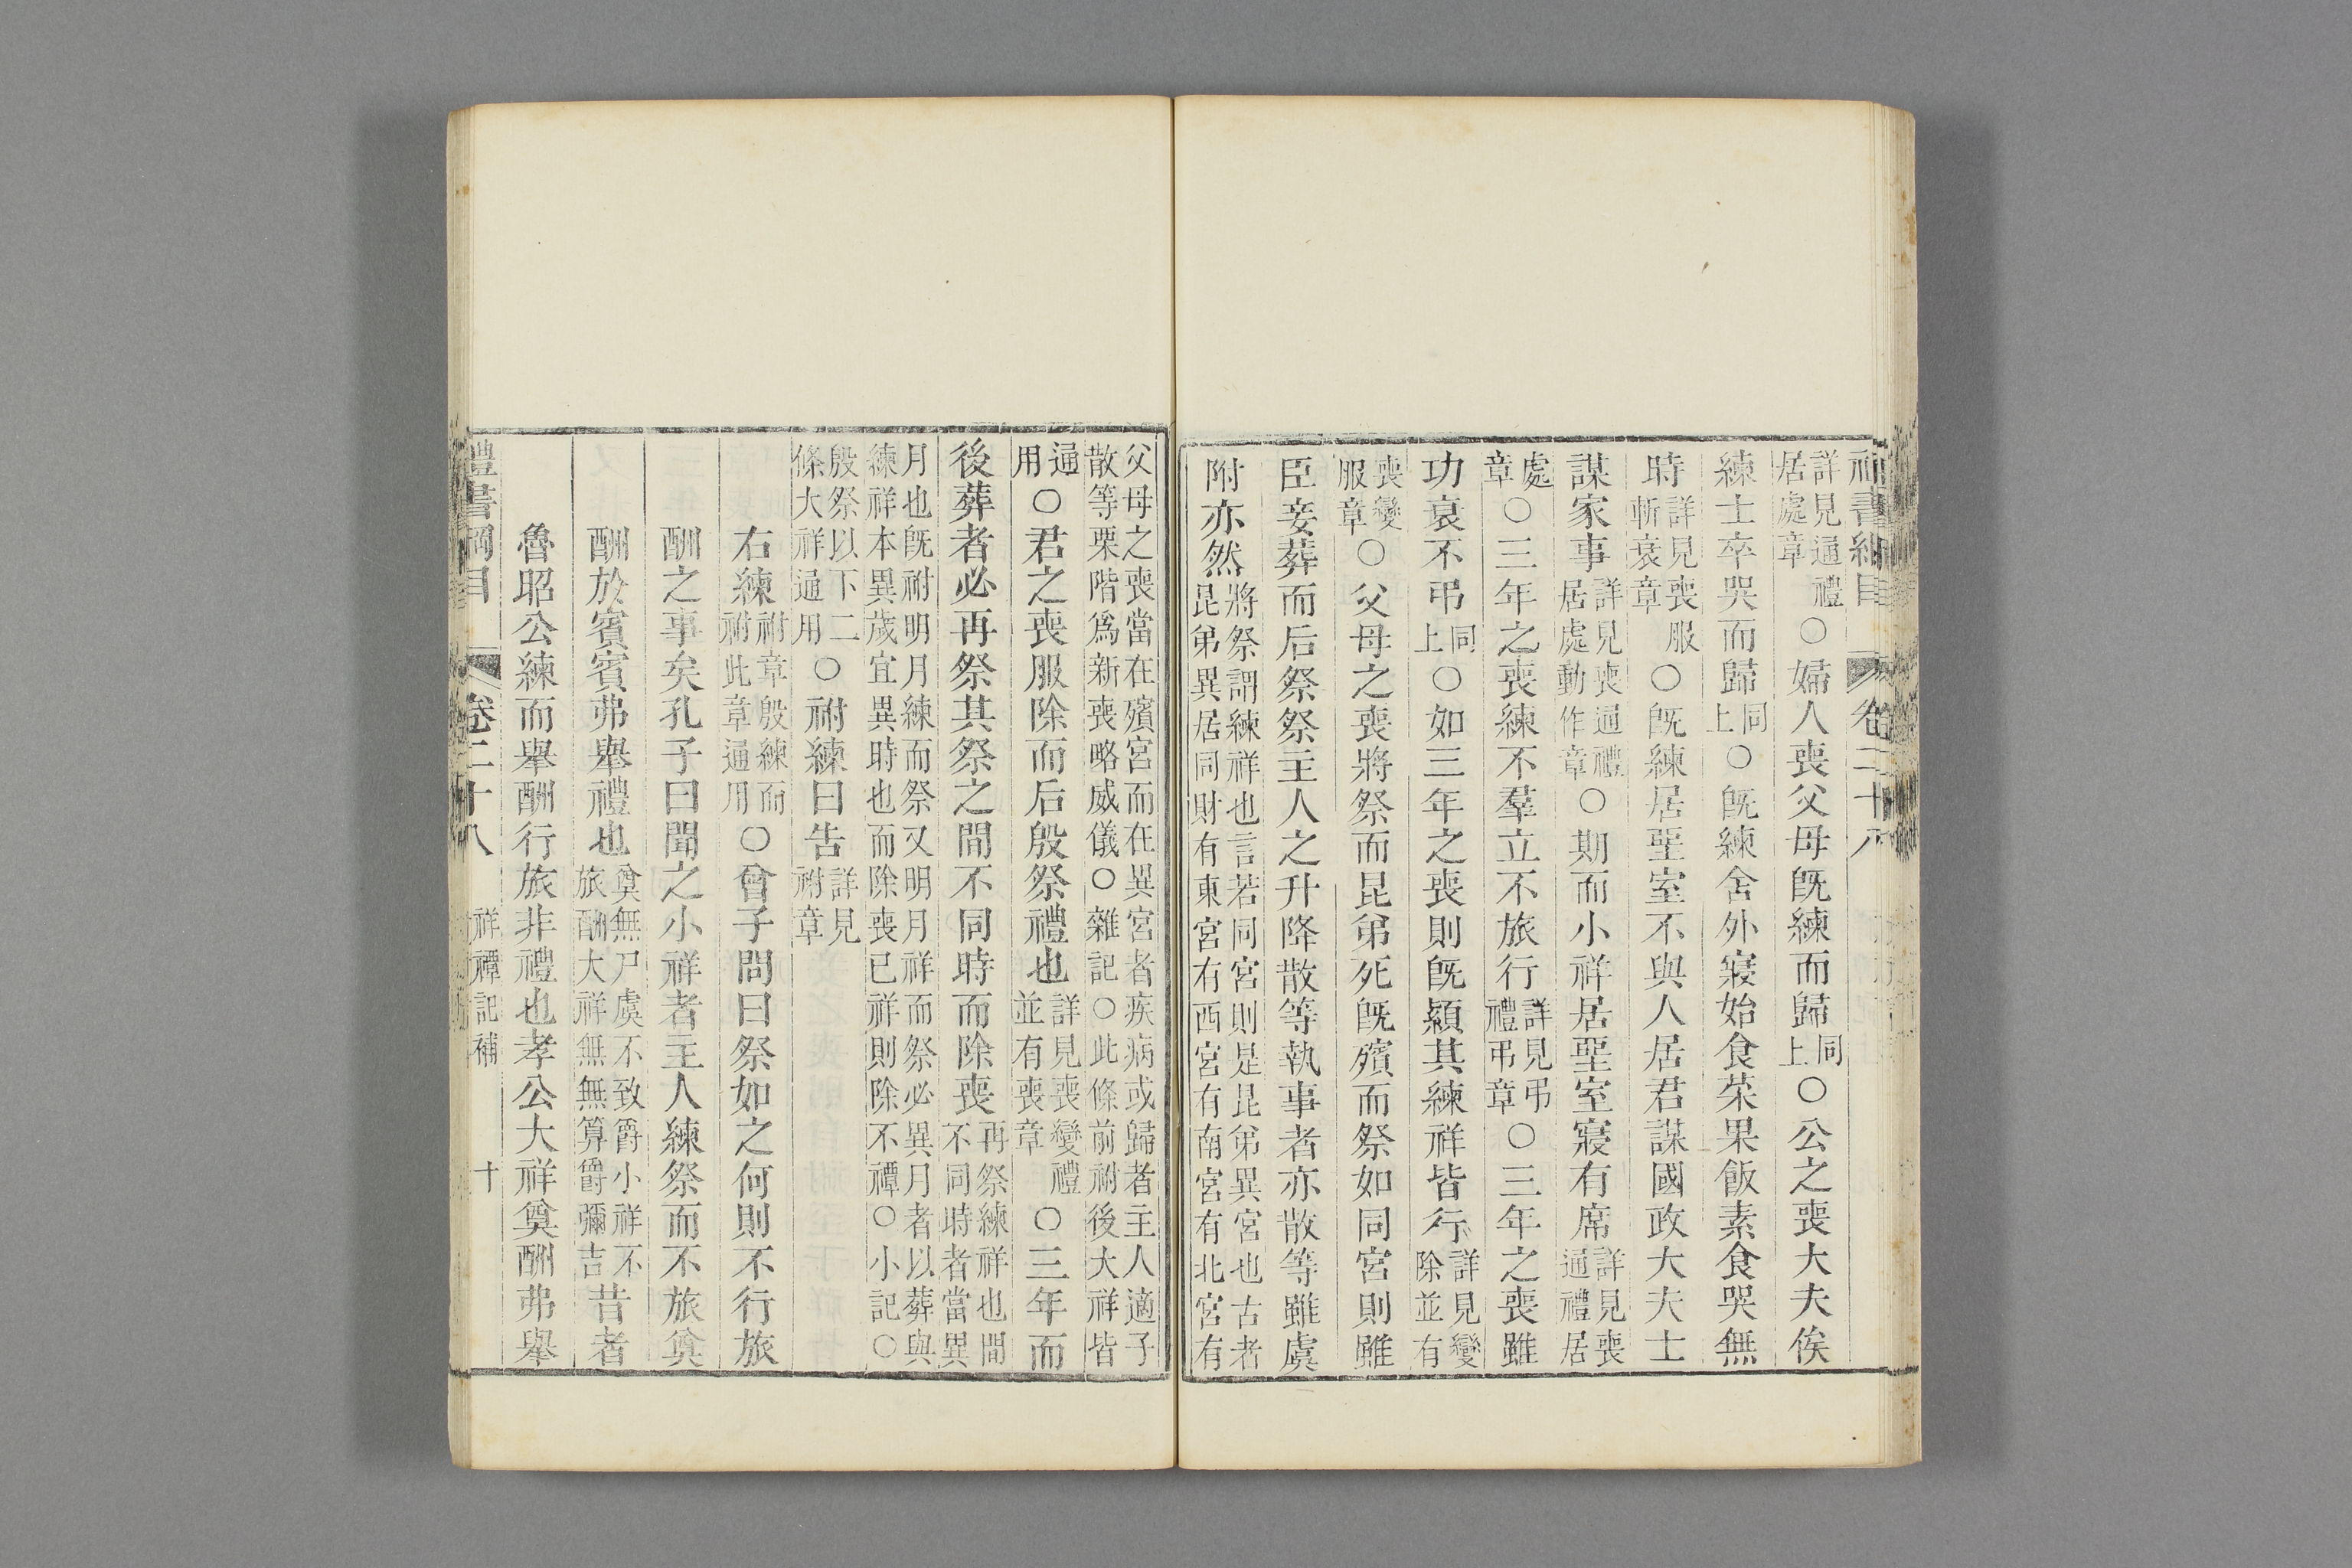 禮書綱目 卷二十八
詳見通禮居處章○婦人喪父母旣練而歸同上○公之喪大夫俟
練士卒哭而歸同上○旣練舍外寢始食菜果飯素食哭無
時詳見喪服斬衰章○旣練居堊室不與人居君謀國政大夫士
謀家事詳見喪通禮居處動作章○期而小祥居堊室寢有席詳見喪通禮居
處章○三年之喪練不羣立不旅行詳見弔禮弔章○三年之喪雖
功衰不弔同上○如三年之喪則旣顈其練祥皆行詳見變除並有
喪變服章○父母之喪將祭而昆弟死旣殯而祭如同宮則雖
臣妾葬而后祭祭主人之升降散等執事者亦散等雖虞
附亦然將祭謂練祥也言若同宮則是昆弟異宮也古者昆弟異居同財有東宮有西宮有南宮有北宮有
父母之喪當在殯宮而在異宮者疾病或歸者主人適子散等栗階爲新喪略威儀○雜記○此條前祔後大祥皆
通用○君之喪服除而后殷祭禮也詳見喪變禮並有喪章○三年而
後葬者必再祭其祭之間不同時而除喪再祭練祥也間不同時者當異
月也旣祔明月練而祭又明月祥而祭必異月者以葬與練祥本異歲宜異時也而除喪已祥則除不禫○小記○
殷祭以下二條大祥通用○祔練曰告詳見祔章
右練祔章殷練而祔此章通用○曾子問曰祭如之何則不行旅
酬之事矣孔子曰聞之小祥者主人練祭而不旅奠
酬於賓賓弗舉禮也奠無尸虞不致爵小祥不旅酬大祥無無算爵彌吉昔者
魯昭公練而舉酬行旅非禮也孝公大祥奠酬弗舉
禮書綱目 卷二十八 祥禫記補 十